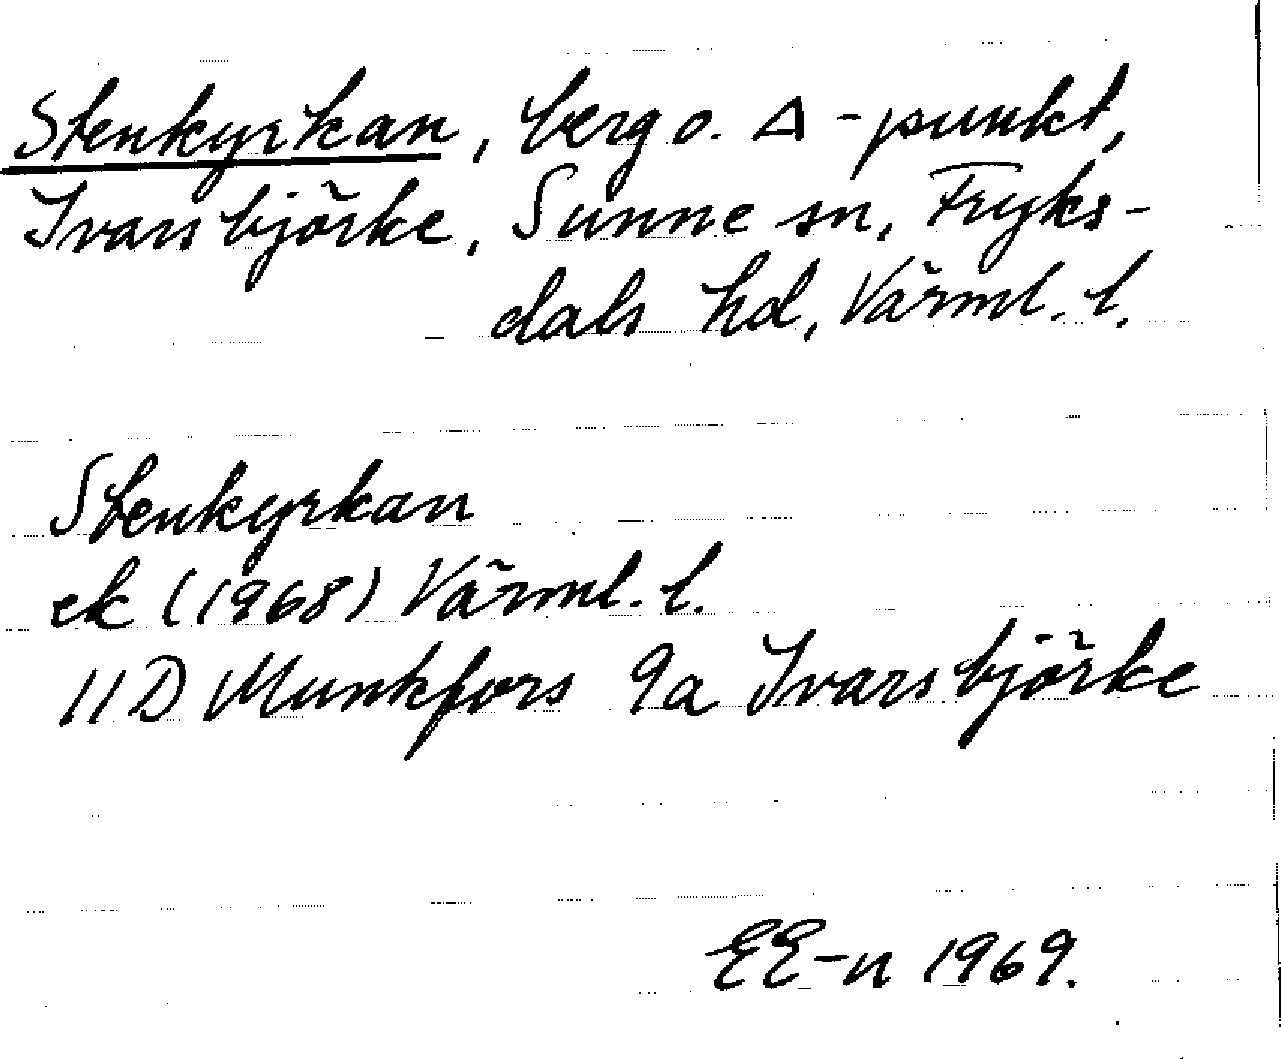 Stenkyrkan, berg o. Δ-punkt,
Ivarsbjörke, Sunne sn, Fryks-
dals hd, Värml. l.
Stenkyrkan
ek (1968) Värml. l.
11D Munkfors 9a Ivarsbjörke
EE-n 1969.